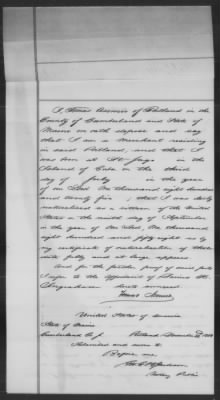 of Portland in the
County of Cumberland and State of
Maine on oath depose and say
that I am a merchant residing
in said Portland, and that I
was born at St. Jago in the
Island of Cuba on the third
day of in the year
of our Lord One thousand eight hundred
and twenty five; that I was duly
naturalized as a citizen of the United
States on the ninth day of September
in the year of our Lord One thousand
eight hundred and fifty eight as by
my certificate of naturalization of that
date fully and at large appears.
And for the further proof of said facts
I refer to the affidavit of
hereto annexed.
United States of America
State of Maine
Cumberland SS Portland
Subscribed and sworn to
Before me
Notary Public